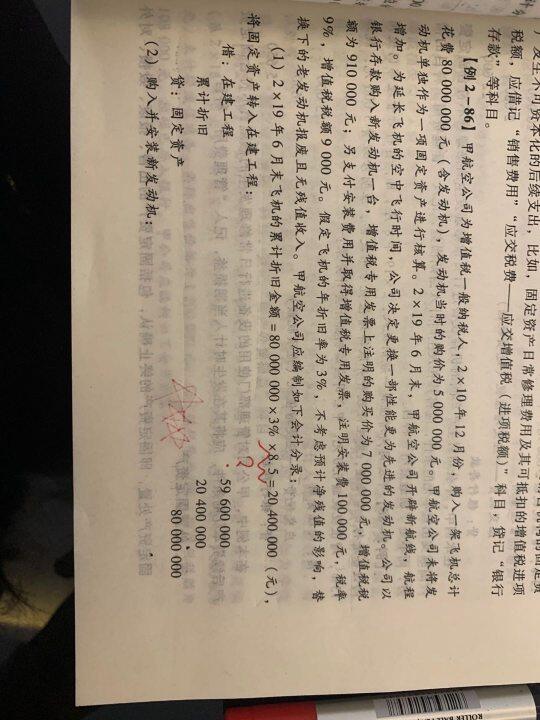 广发生不可资本化的后续支出，比如，固定资产日常修理费用及其可抵扣的增值税进项
税额，应借记“销售费用”“应交税费——应交增值税（进项税额）”科目，贷记“银行
存款”等科目。
【例2-86】甲航空公司为增值税一般纳税人，2×10年12月份，购入一架飞机总计
花费80 000 000元（含发动机），发动机当时的购价为5 000 000元。甲航空公司未将发
动机单独作为一项固定资产进行核算。2×19年6月末，甲航空公司开辟新航线，航程
增加。为延长飞机的空中飞行时间，公司决定更换一部性能更为先进的发动机。公司以
银行存款购入新发动机一台，增值税专用发票上注明的购买价为7 000 000元，增值税税
额为910 000元；另支付安装费用并取得增值税专用发票，注明安装费100 000元，税率
9%，增值税税额9 000元。假定飞机的年折旧率为3%，不考虑预计净残值的影响，替
换下的老发动机报废且无残值收入。甲航空公司应编制如下会计分录：
（1）2×19年6月末飞机的累计折旧金额=80 000 000×3%×8.5=20 400 000（元），
将固定资产转入在建工程：
借：在建工程 59 600 000
累计折旧 20 400 000
贷：固定资产 80 000 000
（2）购入并安装新发动机：
ROLLER BALL